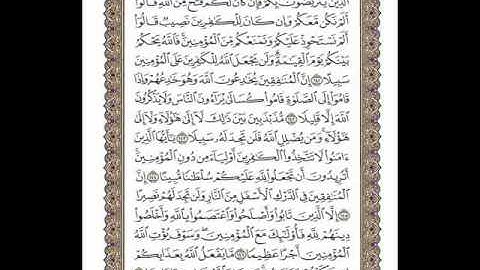 ٱلَّذِينَ يَتَرَبَّصُونَ بِكُمْ فَإِن كَانَ لَكُمْ فَتْحٌ مِّنَ ٱللَّهِ قَالُوٓا۟
أَلَمْ نَكُن مَّعَكُمْ وَإِن كَانَ لِلْكَٰفِرِينَ نَصِيبٌ قَالُوٓا۟
أَلَمْ نَسْتَحْوِذْ عَلَيْكُمْ وَنَمْنَعْكُم مِّنَ ٱلْمُؤْمِنِينَ ۚ فَٱللَّهُ يَحْكُمُ
بَيْنَكُمْ يَوْمَ ٱلْقِيَٰمَةِ ۗ وَلَن يَجْعَلَ ٱللَّهُ لِلْكَٰفِرِينَ عَلَى ٱلْمُؤْمِنِينَ
سَبِيلًا ١٤١ إِنَّ ٱلْمُنَٰفِقِينَ يُخَٰدِعُونَ ٱللَّهَ وَهُوَ خَٰدِعُهُمْ وَإِذَا
قَامُوٓا۟ إِلَى ٱلصَّلَوٰةِ قَامُوا۟ كُسَالَىٰ يُرَآءُونَ ٱلنَّاسَ وَلَا يَذْكُرُونَ
ٱللَّهَ إِلَّا قَلِيلًا ١٤٢ مُّذَبْذَبِينَ بَيْنَ ذَٰلِكَ لَآ إِلَىٰ هَٰٓؤُلَآءِ وَلَآ إِلَىٰ
هَٰٓؤُلَآءِ ۚ وَمَن يُضْلِلِ ٱللَّهُ فَلَن تَجِدَ لَهُۥ سَبِيلًا ١٤٣ يَٰٓأَيُّهَا ٱلَّذِينَ
ءَامَنُوا۟ لَا تَتَّخِذُوا۟ ٱلْكَٰفِرِينَ أَوْلِيَآءَ مِن دُونِ ٱلْمُؤْمِنِينَ ۚ
أَتُرِيدُونَ أَن تَجْعَلُوا۟ لِلَّهِ عَلَيْكُمْ سُلْطَٰنًا مُّبِينًا ١٤٤ إِنَّ
ٱلْمُنَٰفِقِينَ فِى ٱلدَّرْكِ ٱلْأَسْفَلِ مِنَ ٱلنَّارِ وَلَن تَجِدَ لَهُمْ نَصِيرًا
١٤٥ إِلَّا ٱلَّذِينَ تَابُوا۟ وَأَصْلَحُوا۟ وَٱعْتَصَمُوا۟ بِٱللَّهِ وَأَخْلَصُوا۟
دِينَهُمْ لِلَّهِ فَأُو۟لَٰٓئِكَ مَعَ ٱلْمُؤْمِنِينَ ۖ وَسَوْفَ يُؤْتِ ٱللَّهُ
ٱلْمُؤْمِنِينَ أَجْرًا عَظِيمًا ١٤٦ مَّا يَفْعَلُ ٱللَّهُ بِعَذَابِكُمْ